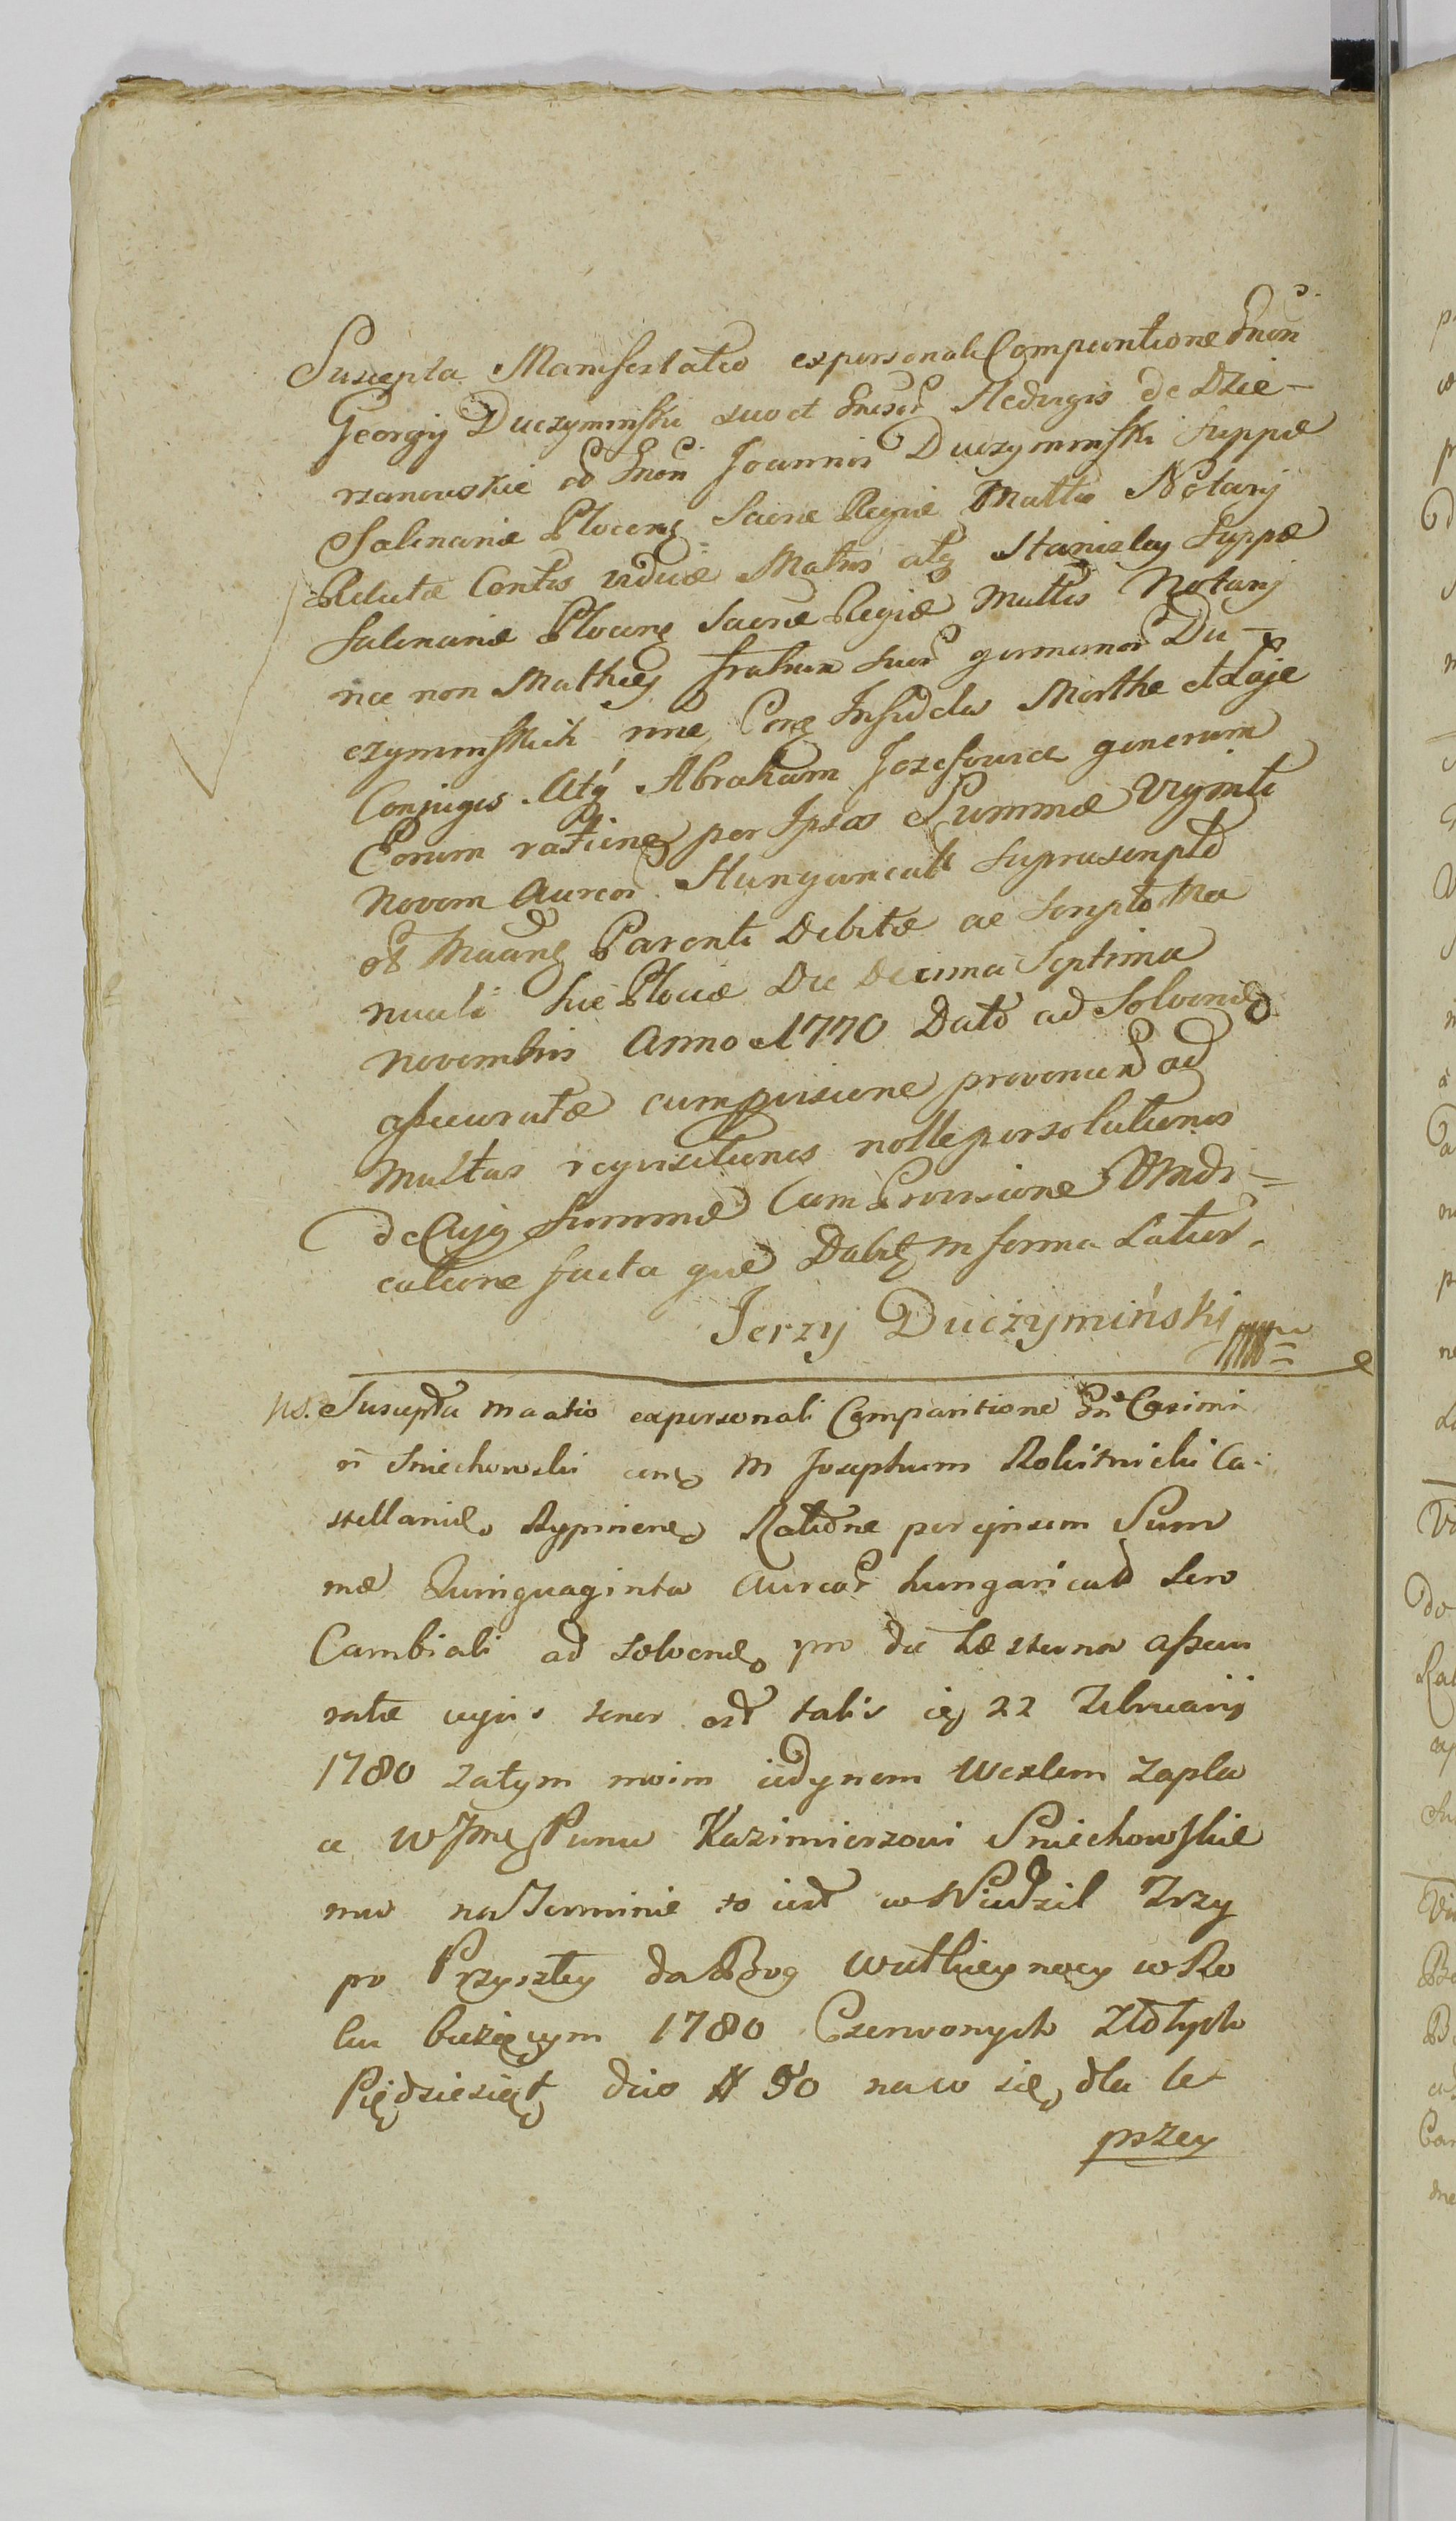 Suscepta Manifestatio ex personali Comparitione Gnon
Georgij Duczyminski suo et Gnesor Hedvigis de Dzie-
rzanowskie od Gnon Joannis Duczyminski Suppæ
Salinariæ Plocens Sacræ Regiæ Mattis Notarij
Relictæ Contis viduæ Matris atq Stanislaj Suppæ
Salinariæ Plocens Sacræ Regiæ Mattis Notarij
nec non Mathiej fratrum suor germanor Du-
czyminskich nne Con Infideles Morthe et Laje
Conjuges Atq Abraham Jozefowicz generum
Eorum ratione per Ipsos Summæ Vrginti
Novem Aureor Hungaricali suprascripto
Maane Parenti Debitæ ac Scripto Ma
nuali hic Plociæ Die Decima Septima
Novembris Anno 1770 Dato ad Solvend
assecuratæ cum provisione provenien ad
Multas reqvisitiones nolle persolutionis
de Cujq Summæ Cum Provisione Vindi-
catione facta que Dabit in forma Latior.
Jerzy Duczymiński mppa
ns. Suscepta Maatio ex personali Comparitione Gn Casimi
ri Sniechowski con M Josephum Rokitnicki Ca-
stellanid Rypinens Ratione per ipsum Sum
mæ Quinquaginta Aureor hungaricał Scro
Cambiali ad solvend pro die hæsterna assecu
ratæ cujus tenor est talis 22 Februarij
1780 za tym moim iedynem Wexlem zapła
ce WJme Panu Kazimierzowi Sniechowskie
mu na Terminie to iest w Niedziel Trzy
po Przyszłey da Bog Wielkieynocy w Ro
ku bieżącym 1780 Czerwonych Złotych
PięDziesięt dico # 50 naco się dla le
pszey